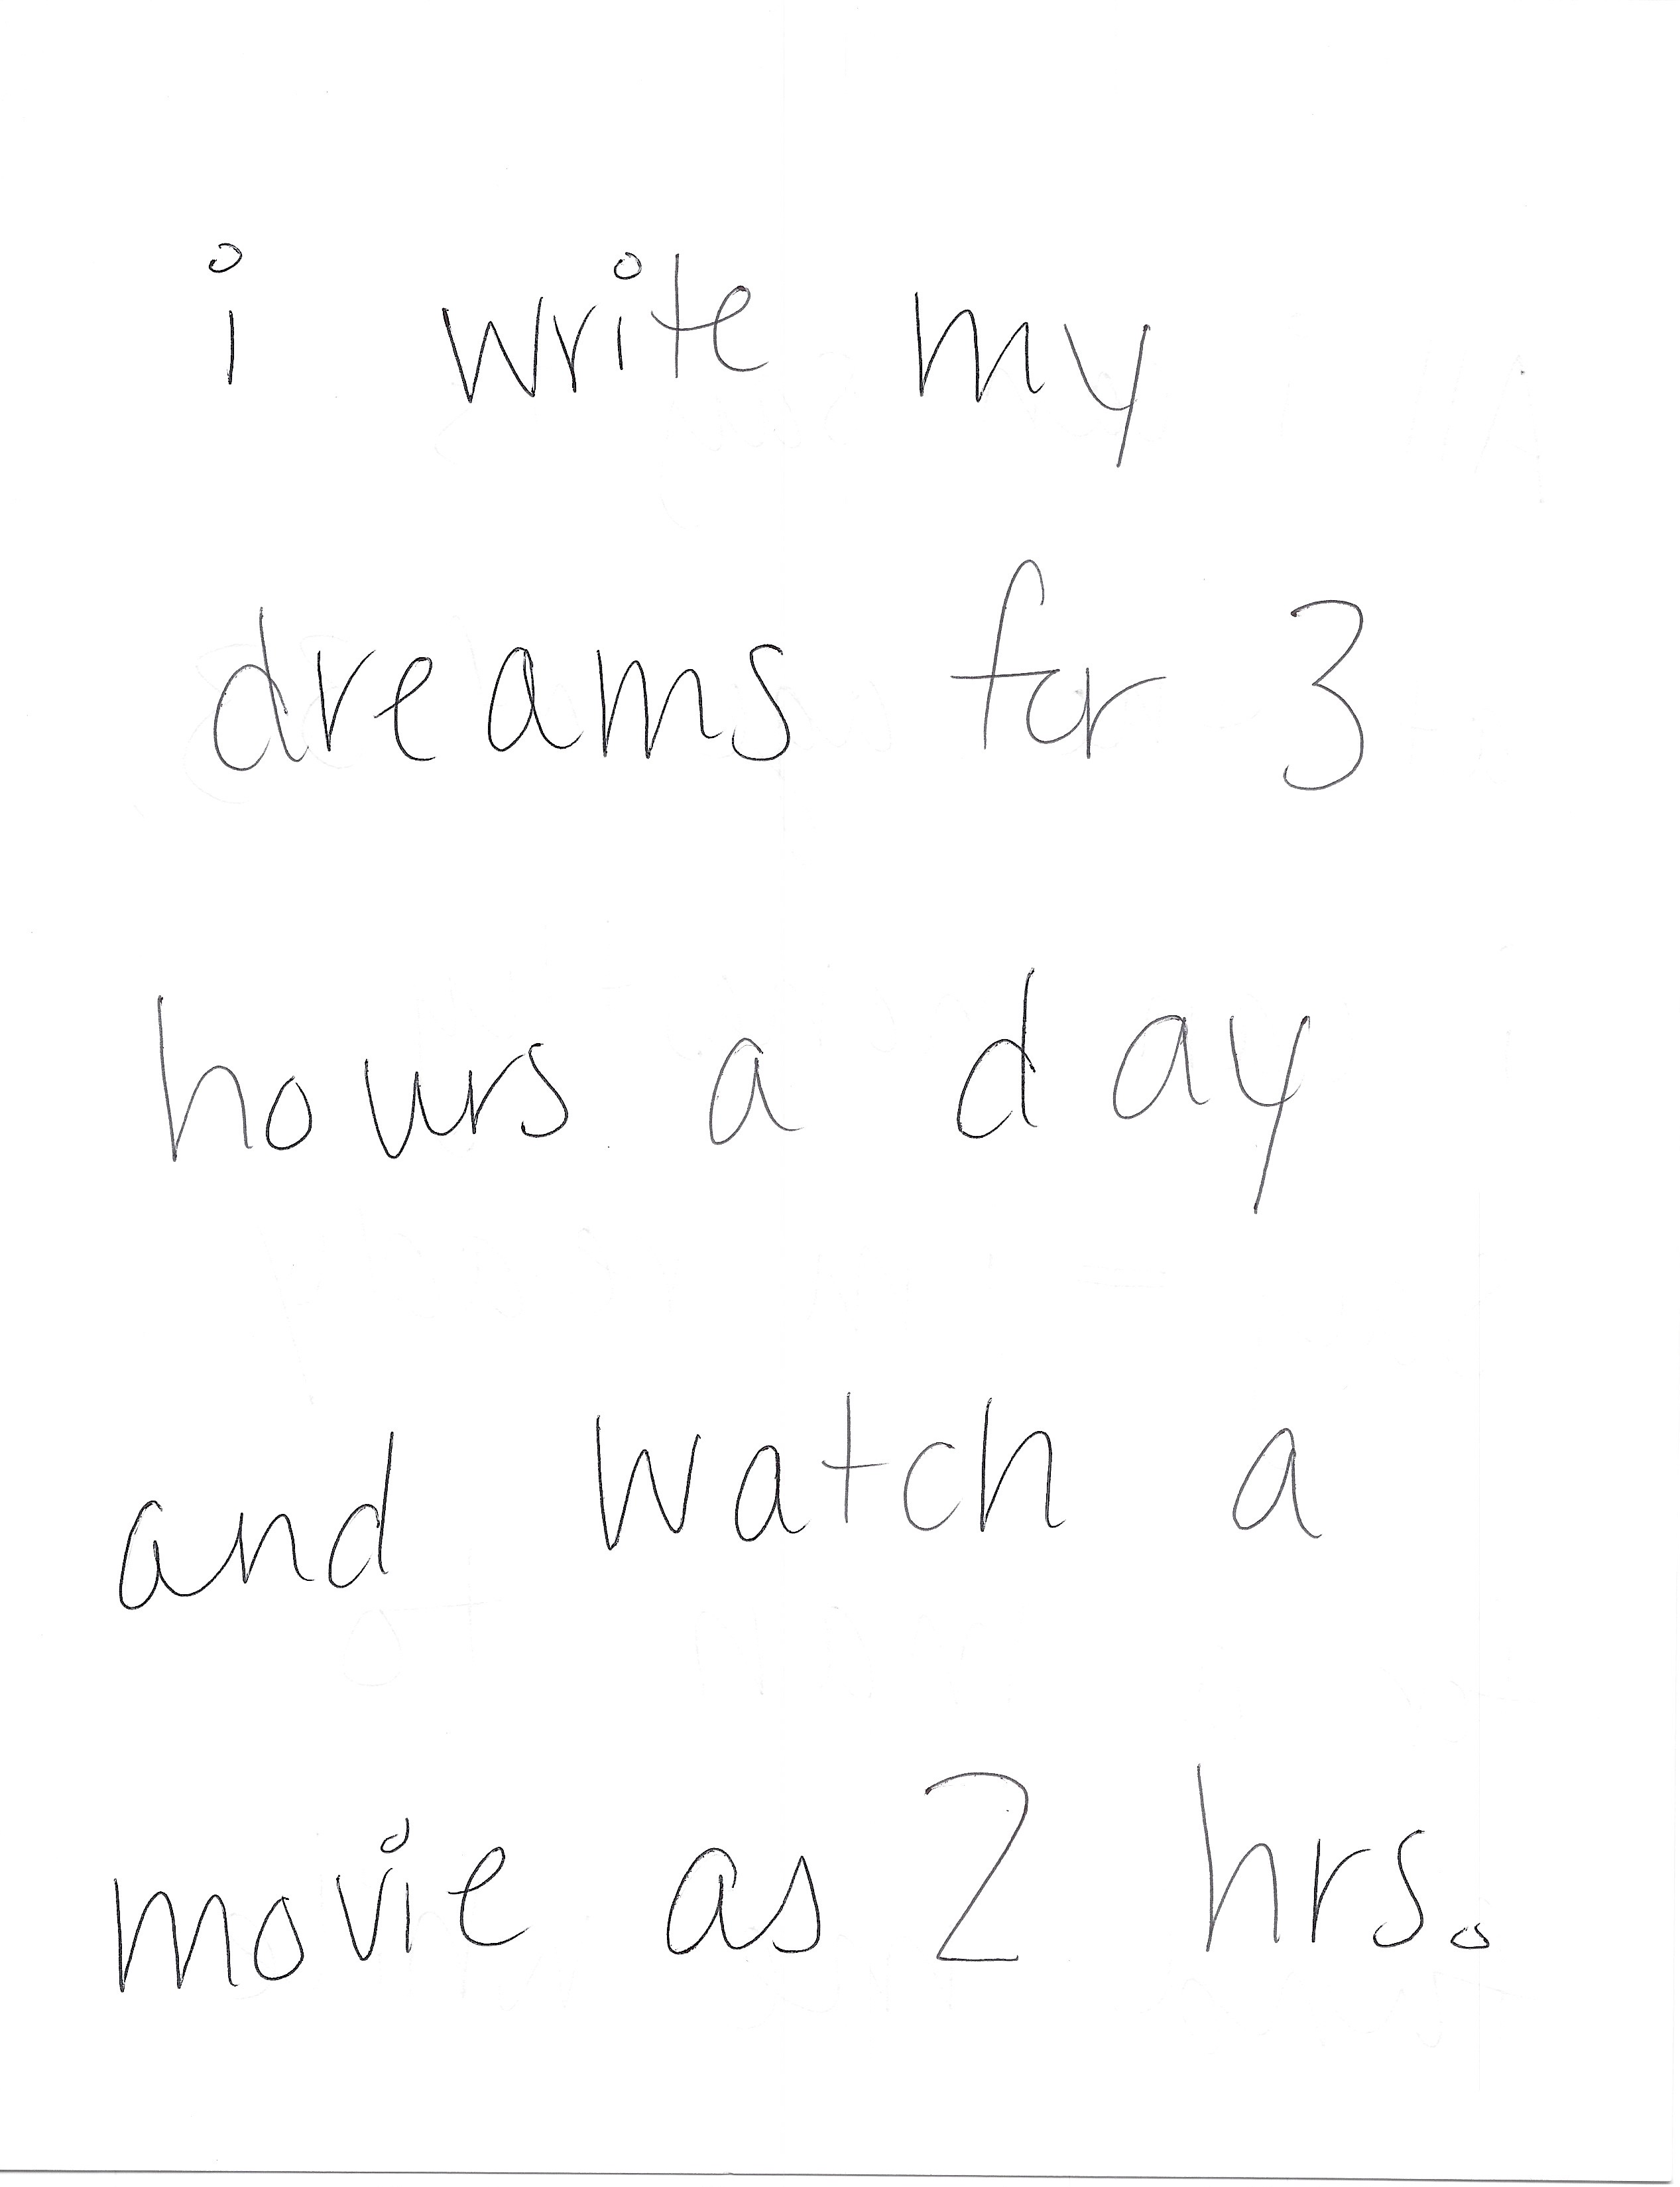 i write my
dreams for 3
hours a day
and watch a
movie as 2 hrs.